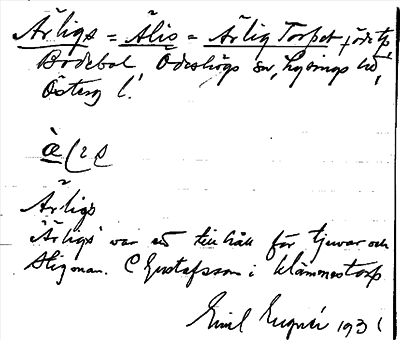 Ärligs = Älis = Ärlig Torpet, öde tp,
Bodebol Ödeshögs sn, Lysings hd,
Österg l.
Ärligs
Ärligs var ett tillhåll för tjuvar och
stigmän. C Gustafsson i Klämmestorp
Emil Eugnér 1931